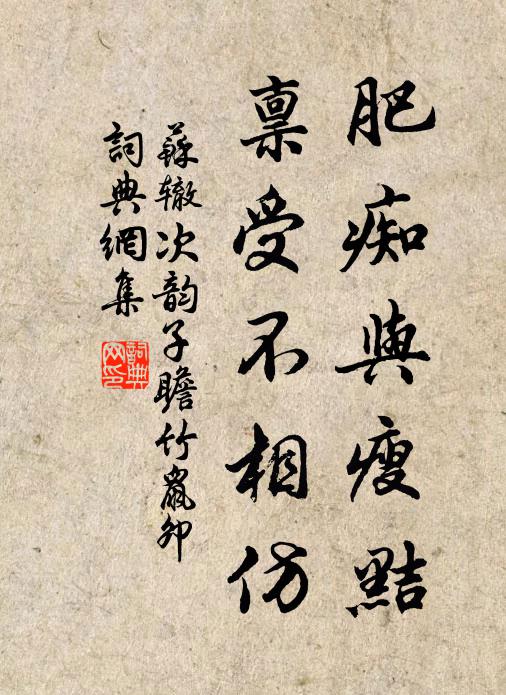 肥痴與瘦黠
稟受不相仿
蘇辙次韵子瞻竹鼠卯
詞典網集
詞典网印